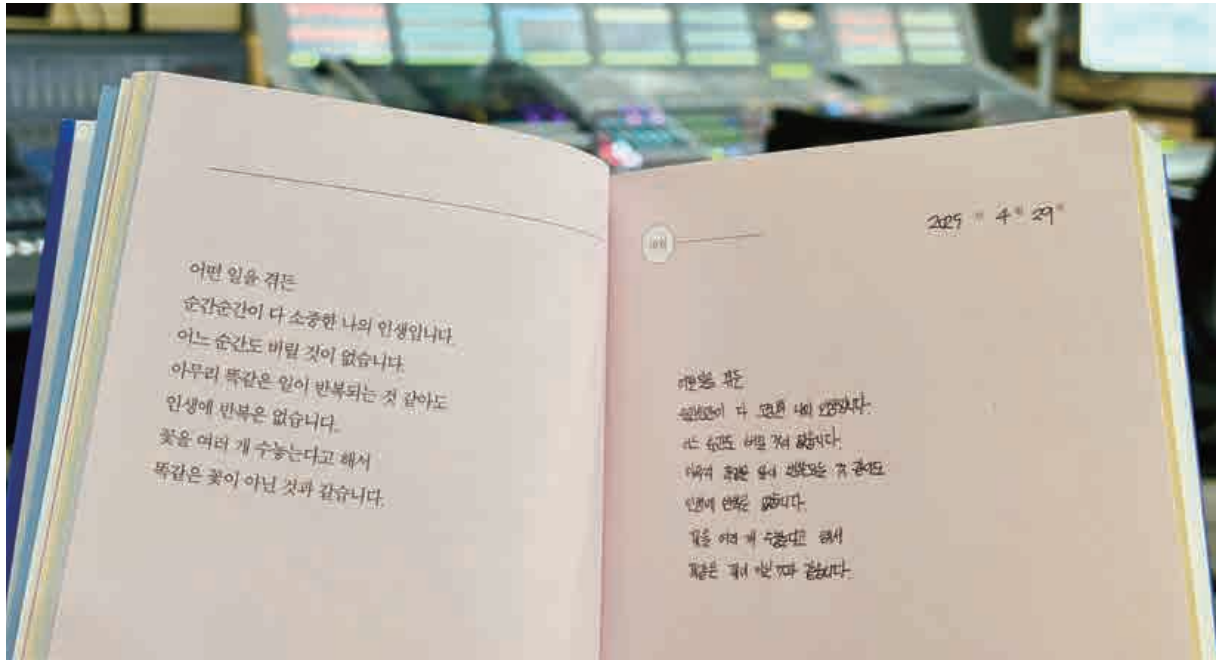 어떤 일을 겪든
순간순간이 다 소중한 나의 인생입니다.
어느 순간도 버릴 것이 없습니다.
아무리 똑같은 일이 반복되는 것 같아도
인생에 반복은 없습니다.
꽃을 여러 개 수놓는다고 해서
똑같은 꽃이 아닌 것과 같습니다.
2025 년 4월 29일
어떤 일을 겪든
순간순간이 다 소중한 나의 인생입니다.
어느 순간도 버릴 것이 없습니다.
아무리 똑같은 일이 반복되는 것 같아도
인생에 반복은 없습니다.
꽃을 여러 개 수놓는다고 해서
똑같은 꽃이 아닌 것과 같습니다.